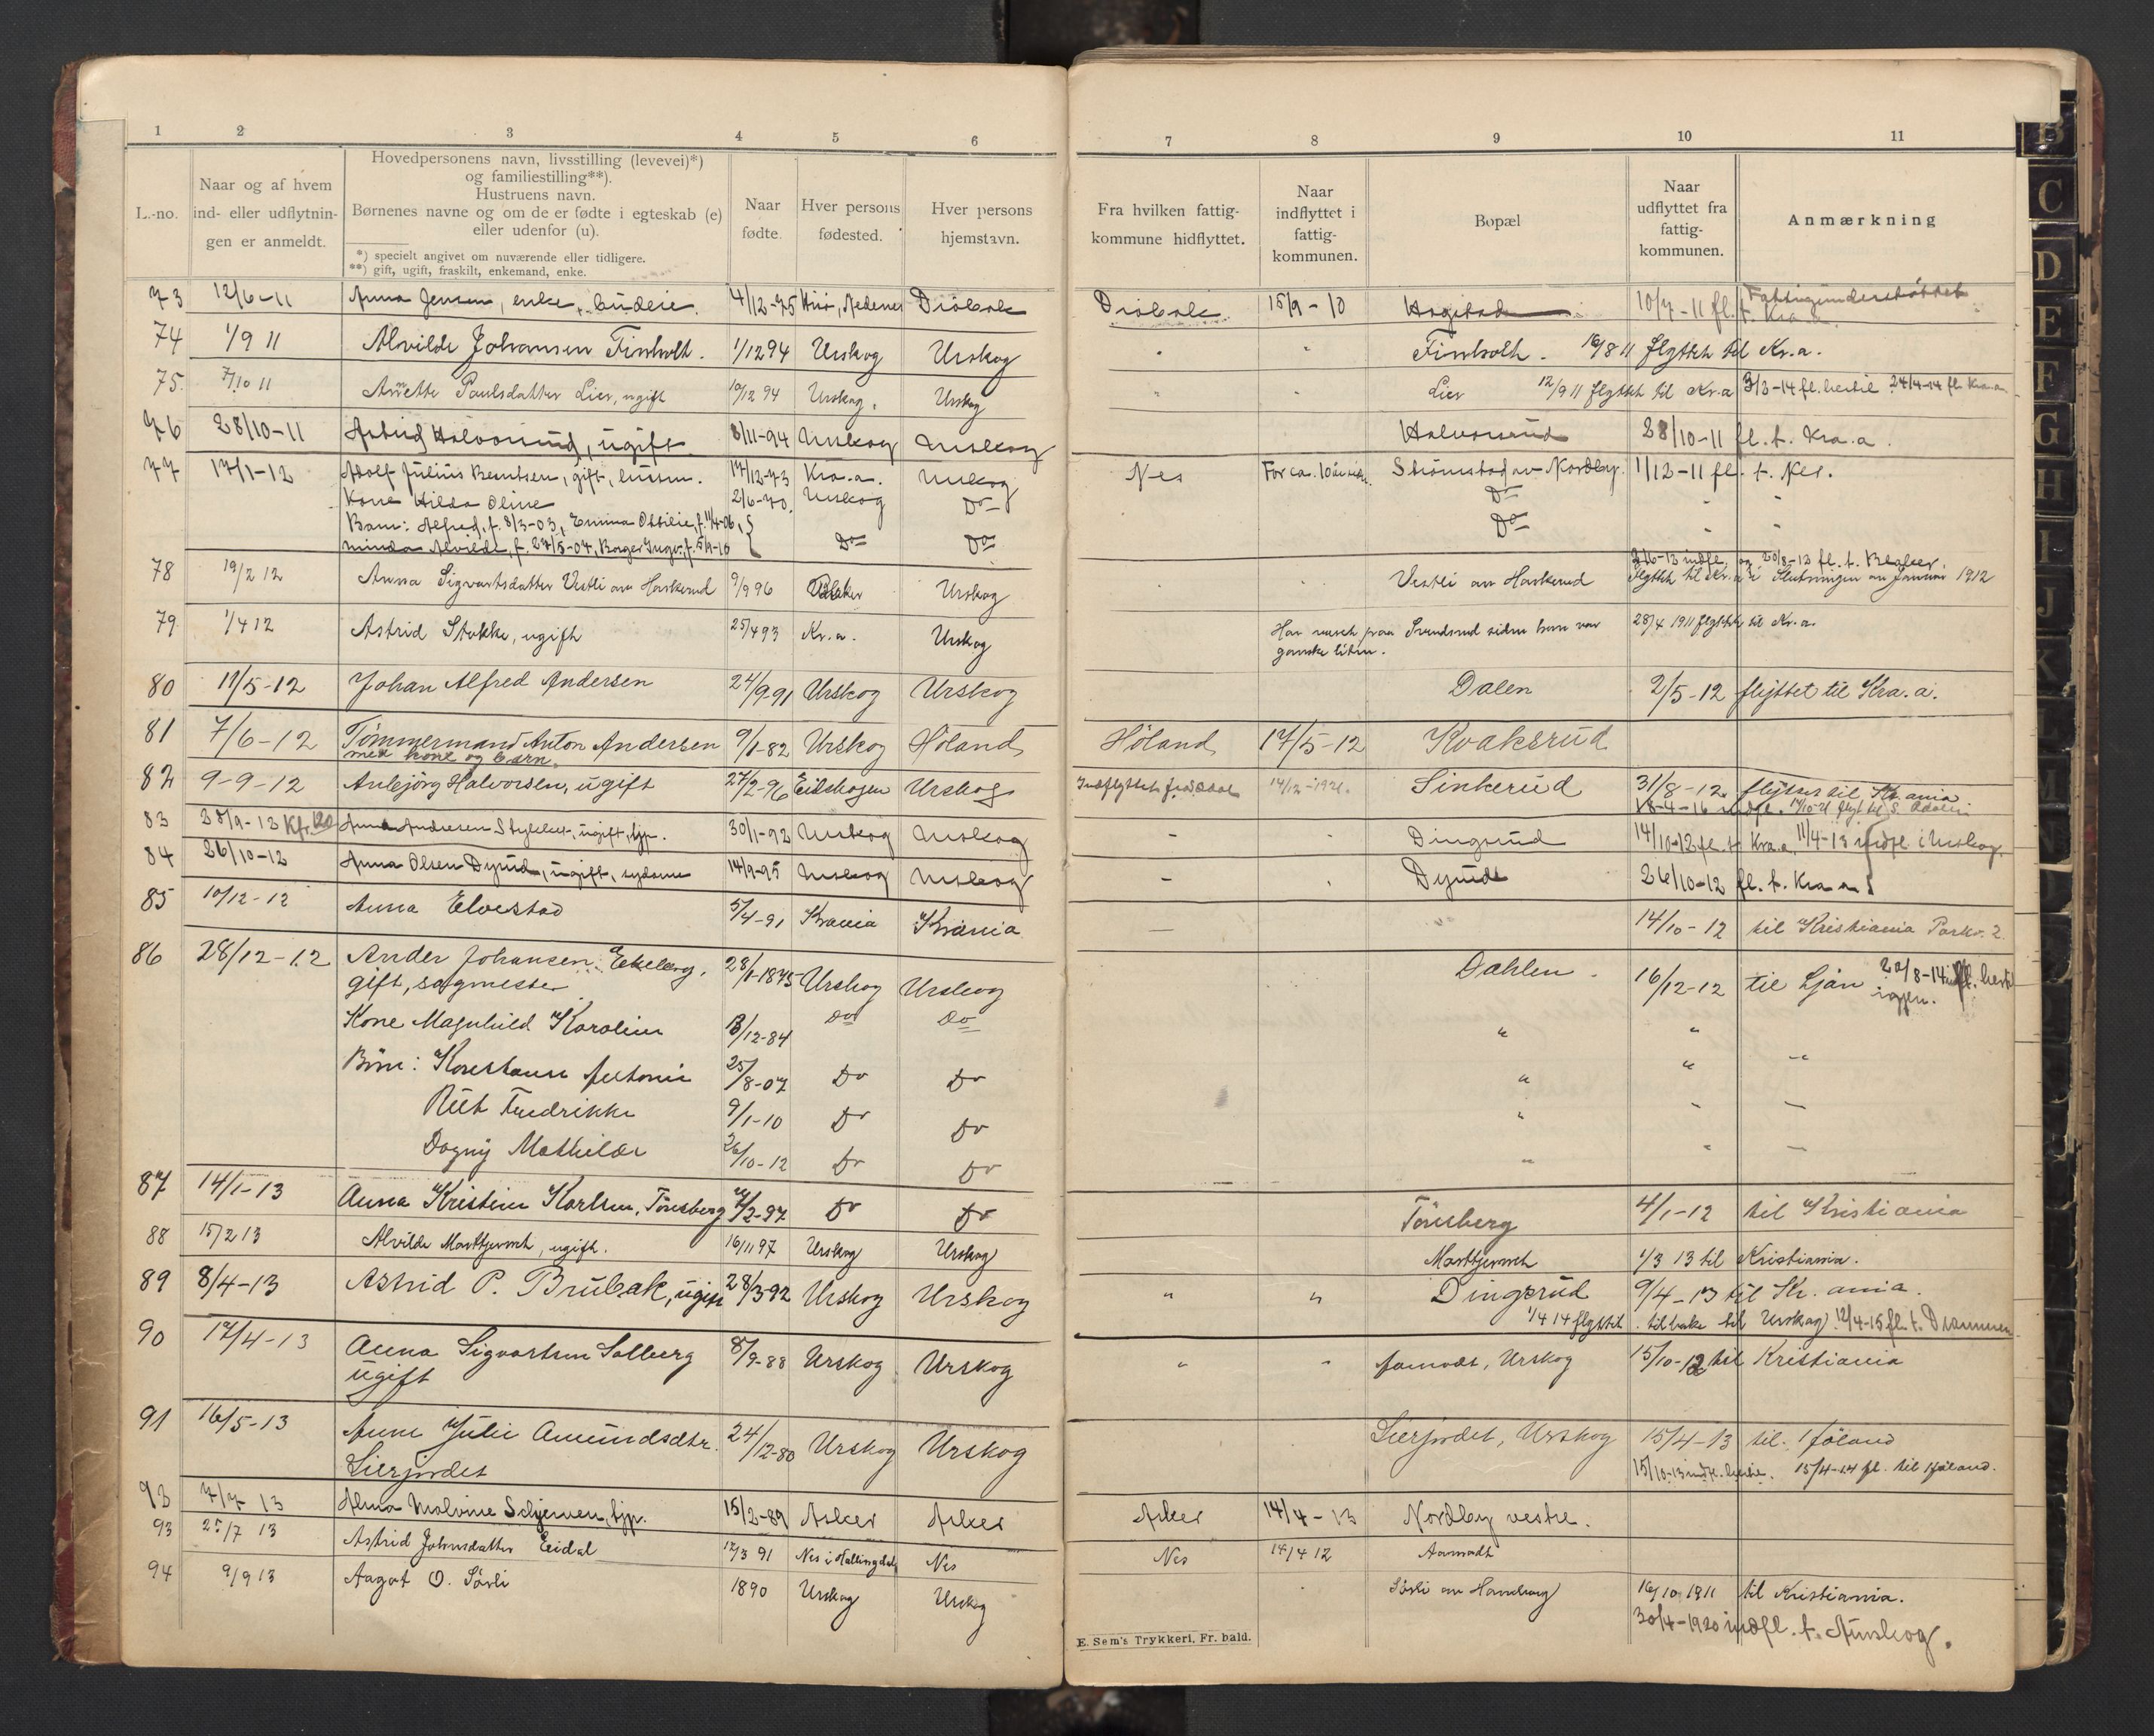 1 2 3 4 5 6 7 8 9 10 11
L.-no.
Naar og af hvem
ind- eller udflytnin-
gen er anmeldt.
Hovedpersonens navn, livsstilling (levevei)*)
og familiestilling**).
Hustruens navn.
Børnenes navne og om de er fødte i egteskab (e)
eller udenfor (u).
*) specielt angivet om nuværende eller tidligere.
**) gift, ugift, fraskilt, enkemand, enke.
Naar
fødte.
Hver persons
fødested.
Hver persons
hjemstavn.
Fra hvilken fattig-
kommune hidflyttet.
Naar
indflyttet i
fattig-
kommunen.
Bopæl
Naar
udflyttet fra
fattig-
kommunen.
Anmærkning
73 12/6-11 Anna Jensen, enke, budeie. 4/12-75 Drøbak Drøbak 15/9-10 10/7-11 fl. t. Kra.a. Fattigunderstøttet
74 1/9 11 Alvilde Johansen Finholt. 1/12 94 Urskog Urskog " " Finholt. 16/8 11 flyttet til Kr.a.
75. 7/10 11 Anette Paulsdatter Lier, ugift 10/12 94 Urskog. Urskog " " Lier 12/9 11 flyttet til Kr.a 3/3-14 fl. hertil. 24/4-14 fl. Kra.a.
76 28/10-11 Astrid Halvorsrud, ugift 8/11-94 Urskog Urskog Halvorsrud 28/10-11 fl. t. Kra.a.
77 17/1-12 Adolf Julius Berntsen, gift, 17/12-73 Kra.a. Urskog Nes For ca. 10 Strømstad av Nordby. 1/12-11 fl. t. Nes.
Kone Hilda Oline 2/6-70. Urskog Do Do
Barn: Alfred, f. 8/3-03, Emma Ottilie, f. 11/4-06, Do
Minda Alvilde, f. 27/5-04, Borger Ingv., f. 5/9-10 Do Do
og 20/8-13 fl. t. Blaker.
78 19/2 12 Anna Sigvartsdatter Vestli av Haskerud 9/9 96 Urskog Vestli av Haskerud flyttet til Kr.a i Slutningen av Januar 1912
79 1/4 12 Astrid Stokke, ugift 25/4 93 Kr.a. Urskog Har været paa Svendsrud siden hun var 28/4 1911 flyttet til Kr.a.
ganske liten.
80 11/5-12 Johan Alfred Andersen 24/9-91 Urskog Urskog Dalen 2/5-12 flyttet til Kra.a.
81 7/6-12 Tømmermand Anton Andersen 9/1-82 Urskog Høland Høland 17/5-12 Kvaksrud
med kone og barn.
82 9-9-12 Anbjørg Halvorsen, ugift 27/2-96 Eidskogen Urskog Indflyttet fra 14/12-1921. Sinkerud 31/8-12 flyttet til Kr.ania
18-4-16 indfl.
83 Anna Andresen ugift, tjp. 30/1-92 Urskog Urskog - Dingsrud 14/10-12 fl. t. Kra.a. 11/4-13 indfl. i Urskog.
84 26/10-12 Anna Olsen Dyrud, ugift, sydame 14/9-95 Urskog Urskog - Dyrud 26/10-12 fl. t. Kra a.
85 10/12-12 Anna Elvestad 5/4-91 Krania Krania — 14/10-12 til Kristiania Parkv. 2.
86 28/12-12 Ander Johansen Ekeberg. 28/1-1875 Urskog Urskog Dahlen. 16/12-12 til Ljan 20/8-14 indfl. hertil
gift, sagmester igjen.
Kone Magnhild Karoline 13/12-84 Do Do " "
Børn: Konstanse Antonie 25/8-07 Do Do " " "
Rut Fredrikke 9/1-10 Do Do " " —
Dagny Mathilde 26/10-12 Do Do " " —
87 14/1-13 Anna Kristine Karlsen, Tönsberg 4/2-97 Do Do Tönsberg 4/1-12 til Kristiania
88 15/2 13 Alvilde ugift. 16/11 97 Urskog Urskog 1/3 13 til Kristiania.
89 8/4-13 Astrid P. Brubak, ugift 28/3-92 Urskog Urskog " " Dingsrud 9/4-13 til Kr.ania.
1/4 14 flyttet tilbake til Urskog. 12/4-15 fl. t. Drammen
90 17/4-13 Anna Sigvartsen Solberg 8/9-88 Urskog Urskog " " Aamodt, Urskog 15/10-12 til Kristiania
ugift
91 16/5-13 Anne Julie Amundsdtr. 24/12-80 Urskog Urskog Lierjordet, Urskog 15/4-13 til Høland
Lierjordet 15/10-13 indfl. hertil. 15/4-14 fl. til Høland.
93 7/7 13 Anna Malvine tjp. 15/2-89 Asker Asker Asker 14/4-13 Nordby vestre.
93 25/7 13 Astrid Johnsdatter Eidal 12/3 91 Nes i Hallingdal Nes Nes 14/4 12 Aamodt
94 9/9 13 Aagot O. Sørli 1890 Urskog Urskog Sørli av 16/10 1911 til Kristiania.
30/4-1920 indfl. t. Aurskog.
E. Sem's Trykkeri, Fr. hald.
B
C
D
E
F
G
H
I
J
K
L
M
N
O
P